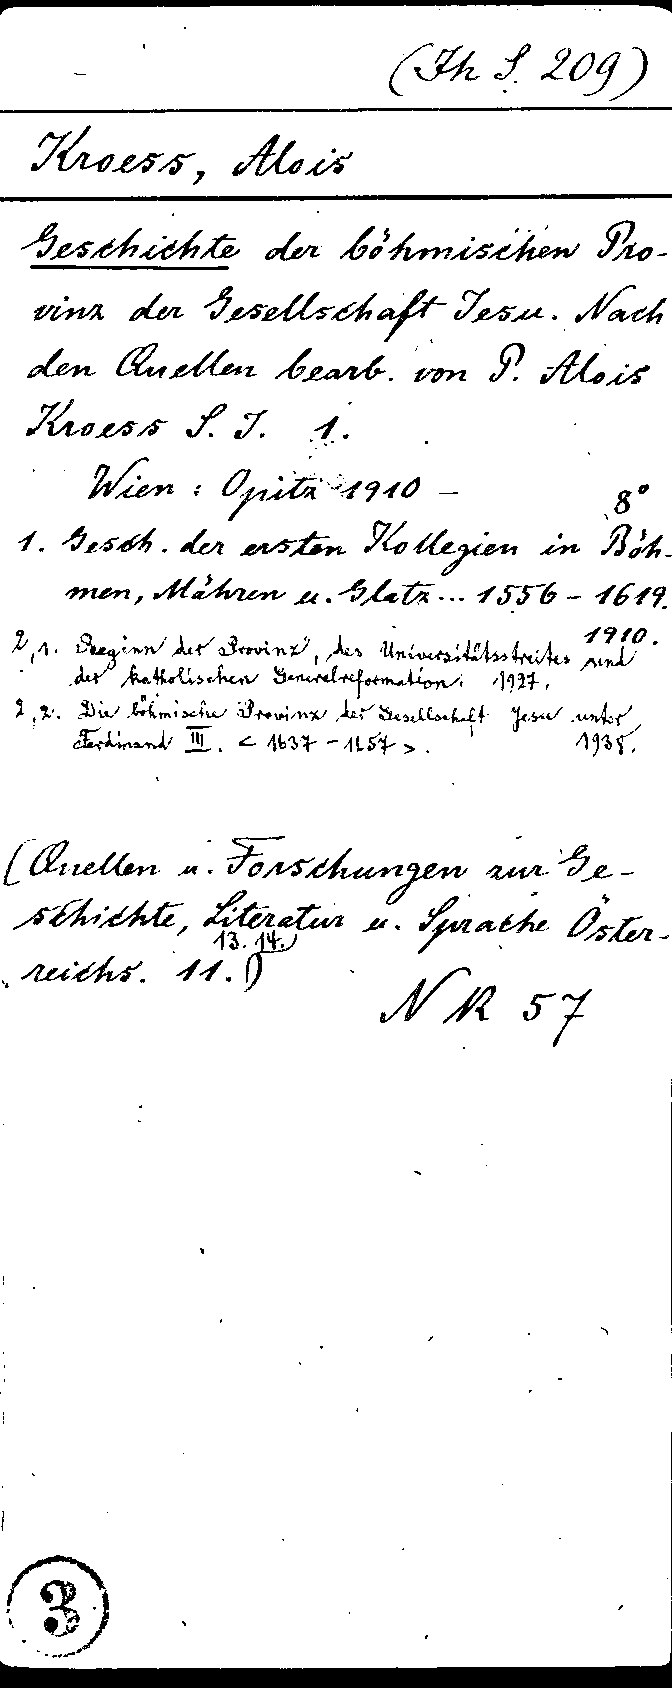 (Th S. 209)
Kroess, Alois
Geschichte der böhmischen Pro-
vinz der Gesellschaft Jesu. Nach
den Quellen bearb. von P. Alois
Kroess S. J. 1.
Wien: Opitz 1910 – 8°
1. Gesch. der ersten Kollegien in Böh-
men, Mähren u. Glatz... 1556 – 1619.
1910.
2,1. Beginn der Provinz, des Universitätsstreites und
der katholischen Generalreformation. 1927.
2,2. Die böhmische Provinz der Gesellschaft Jesu unter
Ferdinand III. < 1637 – 1657 >. 1938.
(Quellen u. Forschungen zur Ge-
schichte, Literatur u. Sprache Öster-
reichs. 11. 13. 14.)
N R 57
3